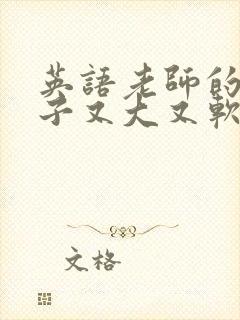 英語老師的
子又大又軟
文格